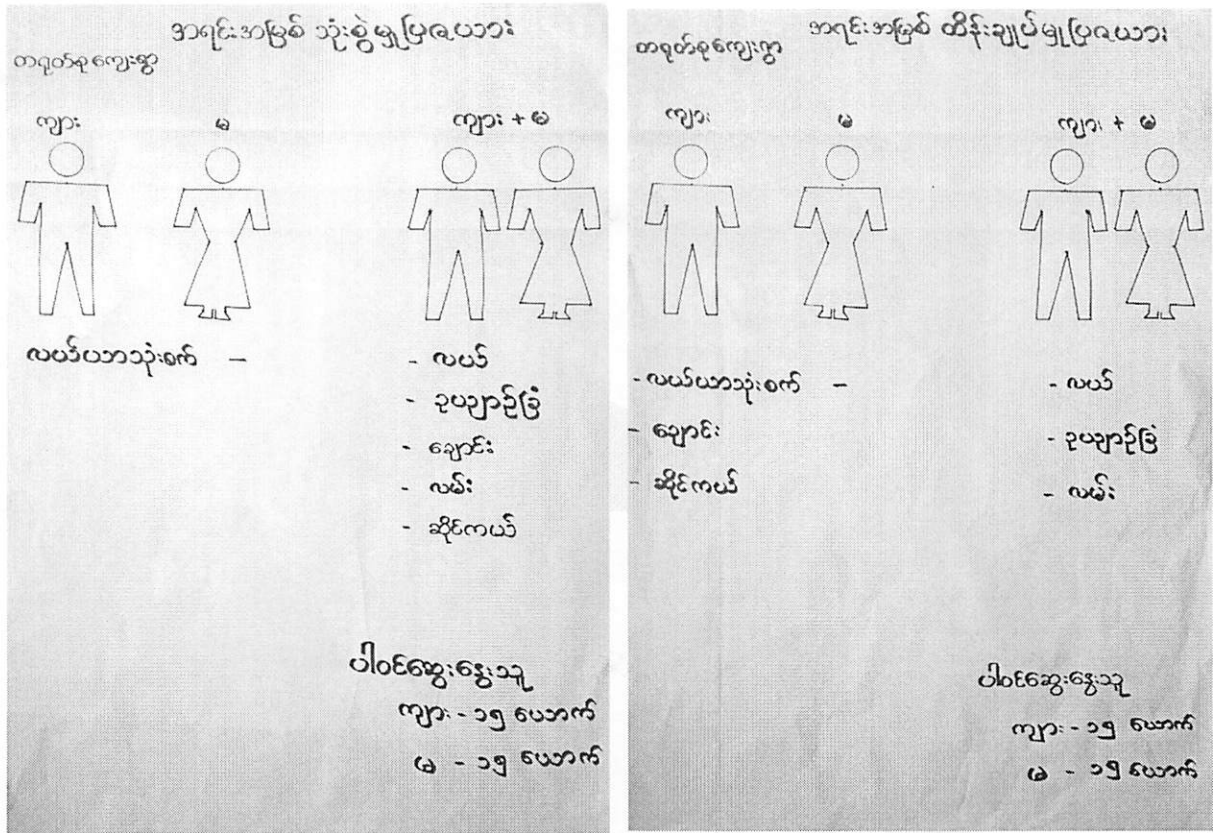 အရင်းအမြစ် သုံးစွဲမှုပြဇယား
တရုတ်စုကျေးရွာ
ကျား
မ
ကျား + မ
လယ်ယာသုံးစက်
-
- လယ်
- ဥယျာဉ်ခြံ
- ချောင်း
- လမ်း
- ဆိုင်ကယ်
ပါဝင်ဆွေးနွေးသူ
ကျား - ၁၅ ယောက်
မ - ၁၅ ယောက်
အရင်းအမြစ် ထိန်းချုပ်မှုပြဇယား
တရုတ်စုကျေးရွာ
ကျား
မ
ကျား + မ
- လယ်ယာသုံးစက်
- ချောင်း
- ဆိုင်ကယ်
-
- လယ်
- ဥယျာဉ်ခြံ
- လမ်း
ပါဝင်ဆွေးနွေးသူ
ကျား - ၁၅ ယောက်
မ - ၁၅ ယောက်